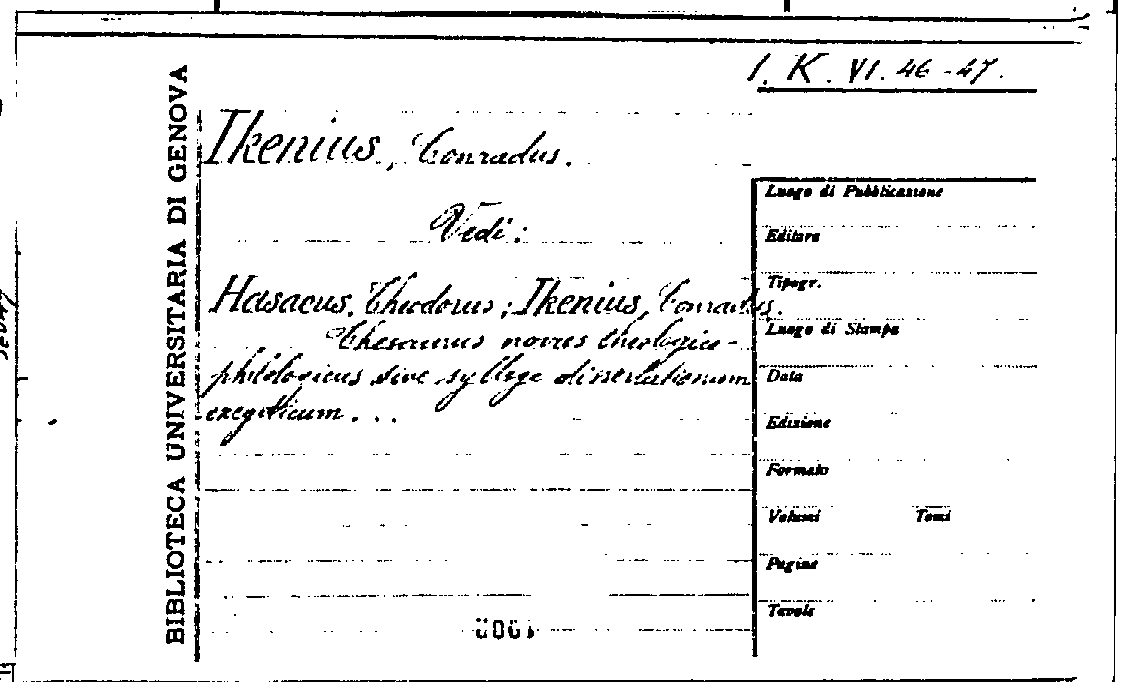 1. K. VI. 46-47.
BIBLIOTECA UNIVERSITARIA DI GENOVA
Ikenius, Conradus.
Vedi:
Hasaeus, Theodorus; Ikenius, Conradus.
Thesaurus novus theologico-
philologicus sive sylloge dissertationum
exegeticum...
Luogo di Pubblicazione
Editore
Tipogr.
Luogo di Stampa
Data
Edizione
Formato
Volumi Tomi
Pagine
Tavole